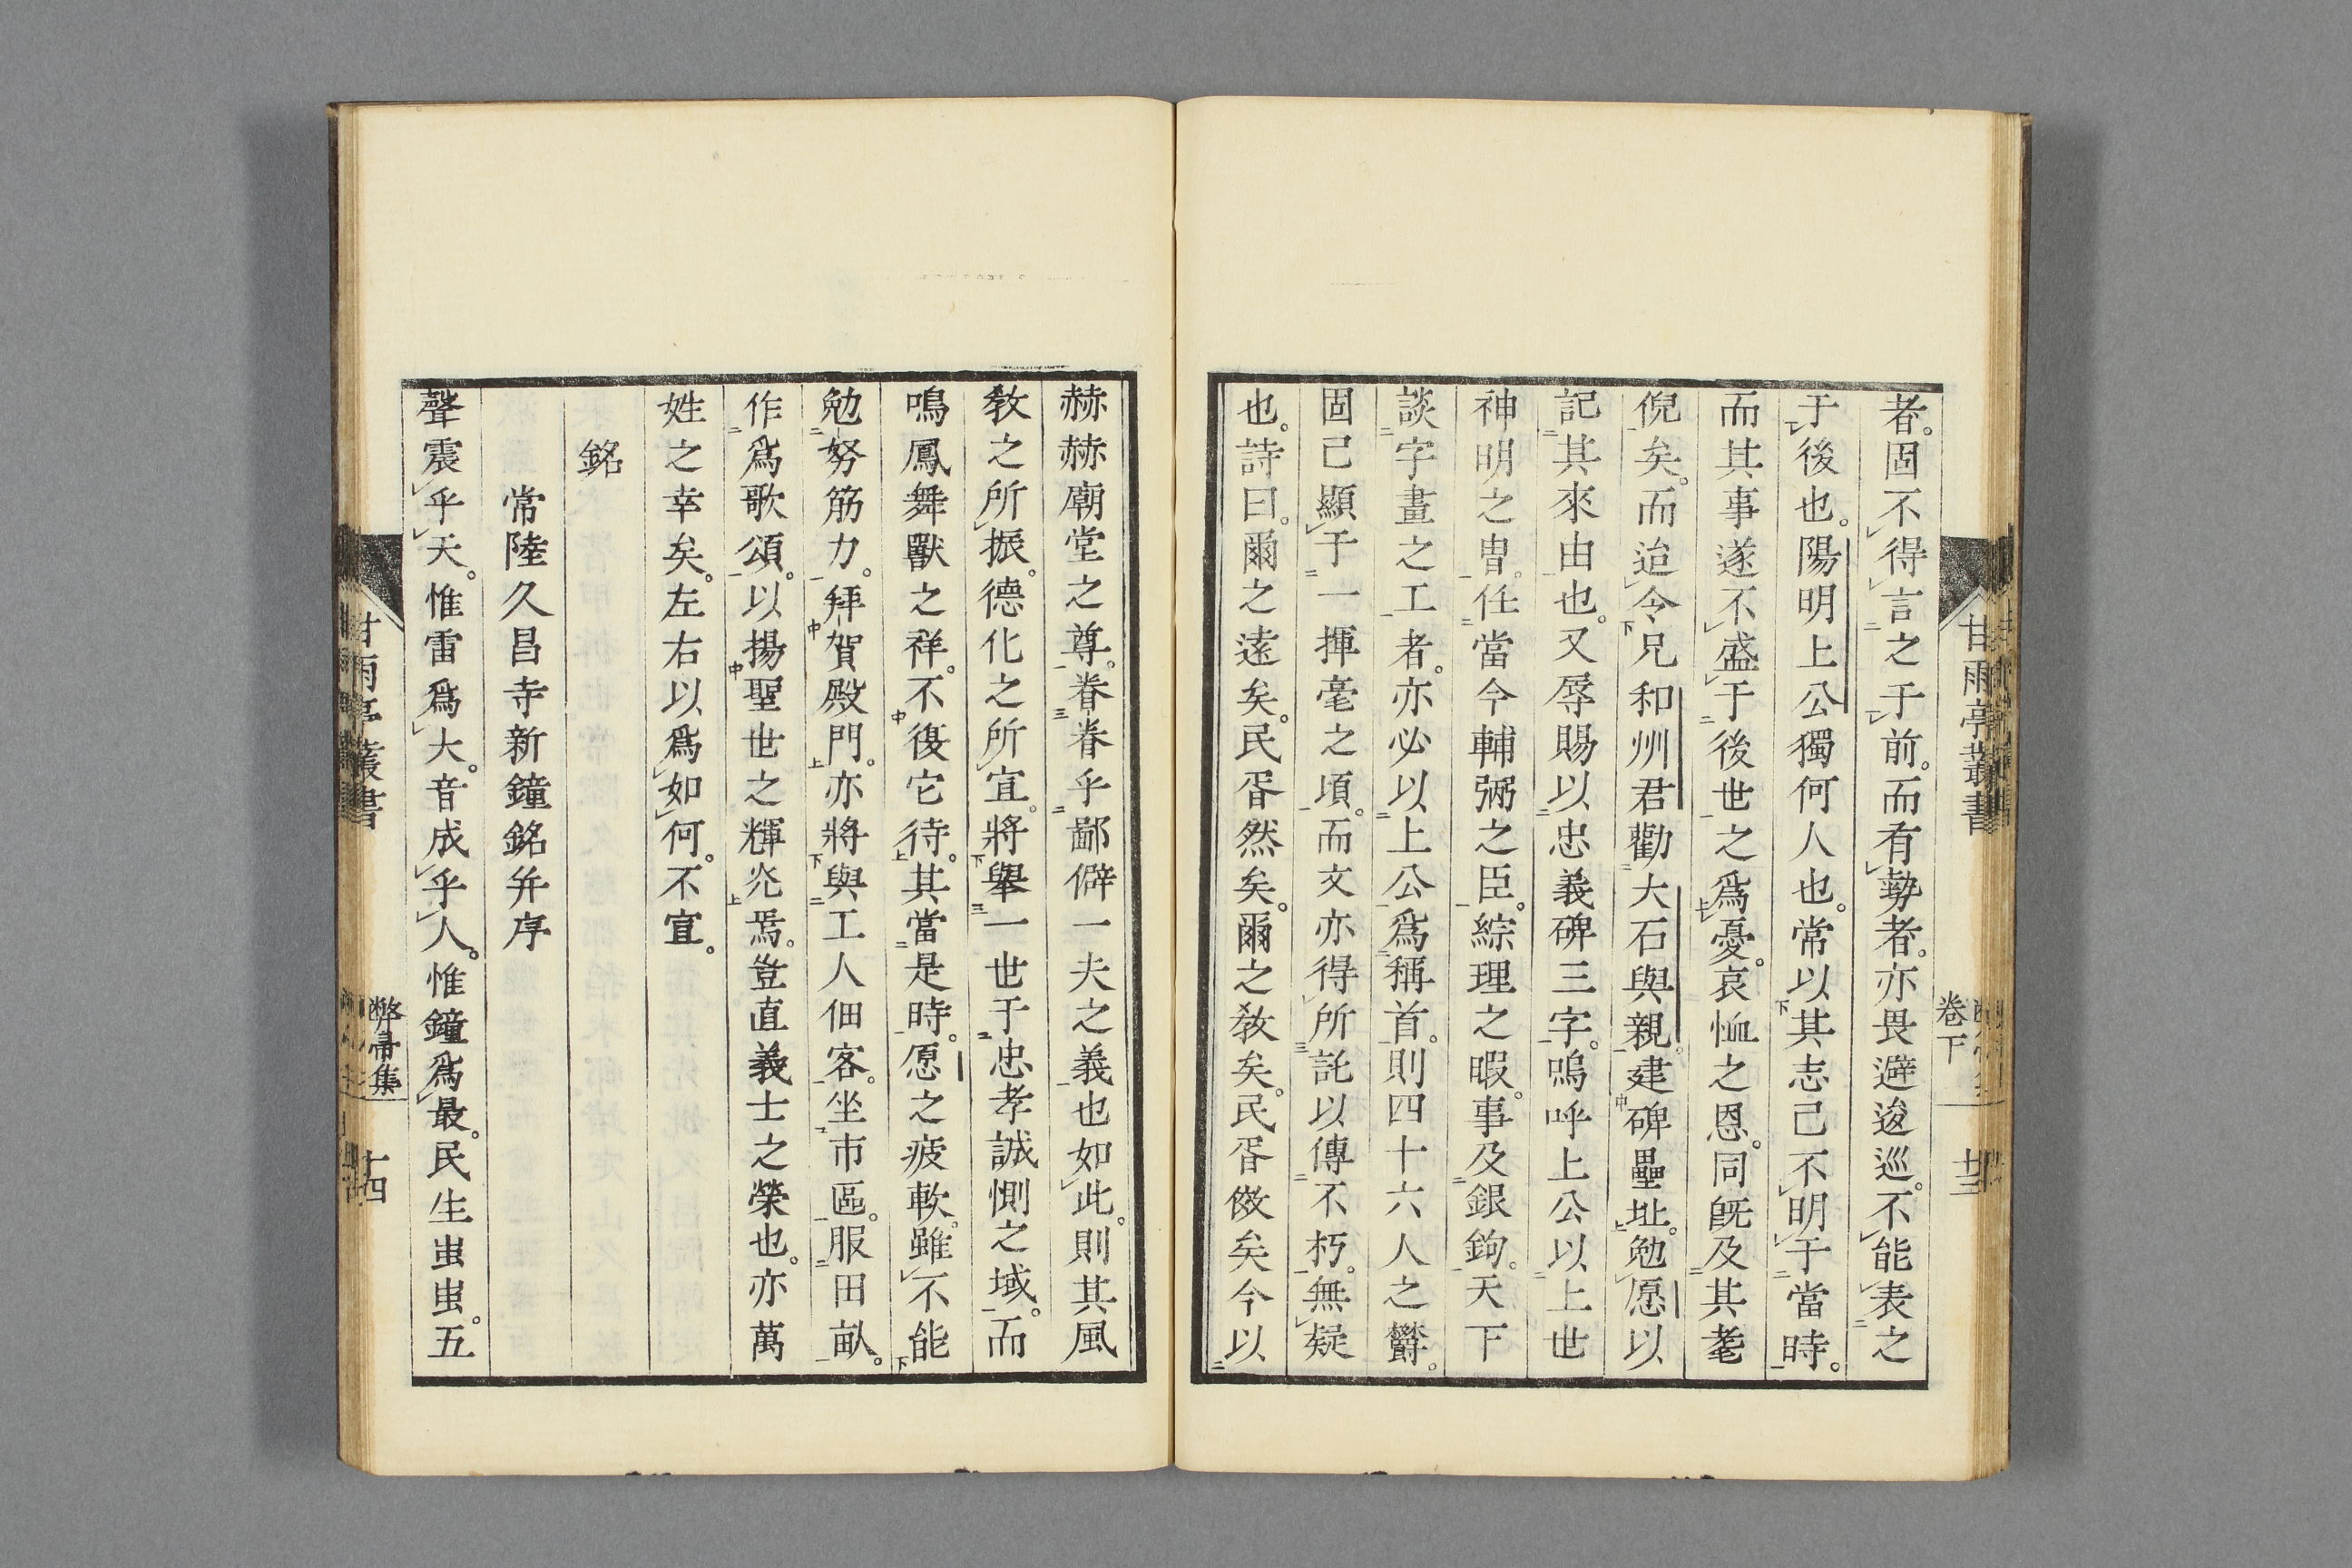 甘雨亭叢書
卷下
廿三
者。固不得言之于前。而有勢者。亦畏避逡巡。不能表之
于後也。陽明上公獨何人也。常以其志己不明于當時。
而其事遂不盛于後世之爲憂。哀恤之恩。同旣及其耄
倪矣。而迨令兄和州君勸大石與親。建碑壘址。勉愿以
記其來由也。又辱賜以忠義碑三字。嗚呼上公以上世
神明之胄。任當今輔弼之臣。綜理之暇。事及銀鉤。天下
談字畫之工者。亦必以上公爲稱首。則四十六人之欝。
固己顯于一揮毫之頃。而文亦得所託以傳不朽。無疑
也。詩曰。爾之遠矣。民胥然矣。爾之敎矣。民胥傚矣今以
赫赫廟堂之尊。眷眷乎鄙僻一夫之義也如此。則其風
敎之所振。德化之所宜。將舉一世于忠孝誠惻之域。而
鳴鳳舞獸之祥。不復它待。其當是時。愿之疲軟。雖不能
勉努筋力。拜賀殿門。亦將與工人佃客。坐市區。服田畝。
作爲歌頌。以揚聖世之輝光焉。豈直義士之榮也。亦萬
姓之幸矣。左右以爲如何。不宣。
銘
常陸久昌寺新鐘銘幷序
聲震乎天。惟雷爲大。音成乎人。惟鐘爲最。民生蚩蚩。五
甘雨亭叢書
弊帚集
廿四